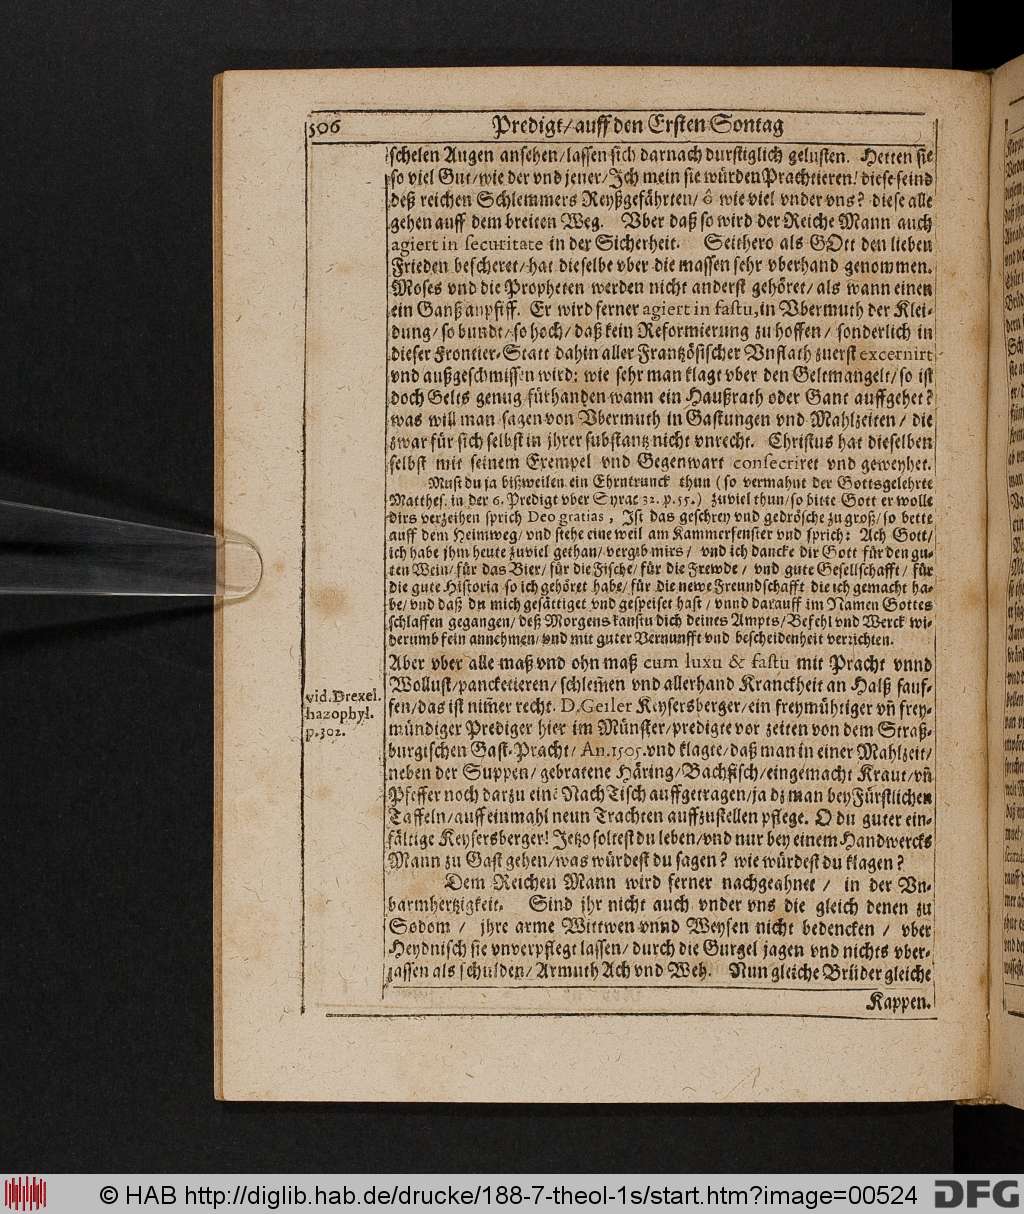 506 Predigt/ auff den Ersten Sontag
schelen Augen ansehen/ lassen sich darnach durstiglich gelusten. Hetten sie
so viel Gut/ wie der vnd jener/ Ich mein sie würden Prachtieren! diese seind
deß reichen Schlemmers Reyßgefährten/ ô wie viel vnder vns? diese alle
gehen auff dem breiten Weg. Vber daß so wird der Reiche Mann auch
agiert in securitate in der Sicherheit. Seithero als GOtt den lieben
Frieden bescheret/ hat dieselbe vber die massen sehr vberhand genommen.
Moses vnd die Propheten werden nicht anderst gehöret/ als wann einen
ein Ganß anpfiff. Er wird ferner agiert in fastu, in Vbermuth der Klei-
dung/ so bundt/ so hoch/ daß kein Reformierung zu hoffen/ sonderlich in
dieser Frontier-Statt dahin aller Frantzösischer Vnflath zuerst excernirt
vnd außgeschmissen wird: wie sehr man klagt vber den Geltmangelt/ so ist
doch Gelts genug fürhanden wann ein Haußrath oder Gant auffgehet?
was will man sagen von Vbermuth in Gastungen vnd Mahlzeiten/ die
zwar für sich selbst in jhrer substantz nicht vnrecht. Christus hat dieselben
selbst mit seinem Exempel vnd Gegenwart consecriret vnd geweyhet.
Must du ja bißweilen ein Ehrntrunck thun (so vermahnt der Gottsgelehrte
Matthes. in der 6. Predigt vber Syrac 32. p. 55.) zuviel thun/ so bitte Gott er wolle
dirs verzeihen sprich Deo gratias, Ist das geschrey vnd gedrösche zu groß/ so bette
auff dem Heimweg/ vnd stehe eine weil am Kammerfenster vnd sprich: Ach Gott/
ich habe jhm heute zuviel gethan/ vergib mirs/ vnd ich dancke dir Gott für den gu-
ten Wein/ für das Bier/ für die Fische/ für die Frewde/ vnd gute Gesellschafft/ für
die gute Historia so ich gehöret habe/ für die newe Freundschafft die ich gemacht ha-
be/ vnd daß du mich gesättiget vnd gespeiset hast/ vnnd darauff im Namen Gottes
schlaffen gegangen/ deß Morgens kanstu dich deines Ampts/ Befehl vnd Werck wi-
derumb fein annehmen/ vnd mit guter Vernunfft vnd bescheidenheit verrichten.
Aber vber alle maß vnd ohn maß cum luxu & fastu mit Pracht vnnd
Wollust/ pancketieren/ schlem̃en vnd allerhand Kranckheit an Halß sauf-
fen/ das ist nim̃er recht. D. Geiler Keysersberger/ ein freymühtiger vñ frey-
mündiger Prediger hier im Münster/ predigte vor zeiten von dem Straß-
burgischen Gast-Pracht/ An. 1505. vnd klagte/ daß man in einer Mahlzeit/
neben der Suppen/ gebratene Häring/ Bachfisch/ eingemacht Kraut/ vñ
Pfeffer noch darzu einẽ Nach Tisch auffgetragen/ ja dz man bey Fürstlichen
Taffeln/ auff einmahl neun Trachten auffzustellen pflege. O du guter ein-
fältige Keysersberger! Jetzo soltest du leben/ vnd nur bey einem Handwercks
Mann zu Gast gehen/ was würdest du sagen? wie würdest du klagen?
Dem Reichen Mann wird ferner nachgeahnet/ in der Vn-
barmhertzigkeit. Sind jhr nicht auch vnder vns die gleich denen zu
Sodom/ jhre arme Wittwen vnnd Weysen nicht bedencken/ vber
Heydnisch sie vnverpflegt lassen/ durch die Gurgel jagen vnd nichts vber-
lassen als schulden/ Armuth Ach vnd Weh. Nun gleiche Brüder gleiche
Kappen.
vid. Drexel.
hazophyl.
p. 302.
© HAB http://diglib.hab.de/drucke/188-7-theol-1s/start.htm?image=00524
DFG